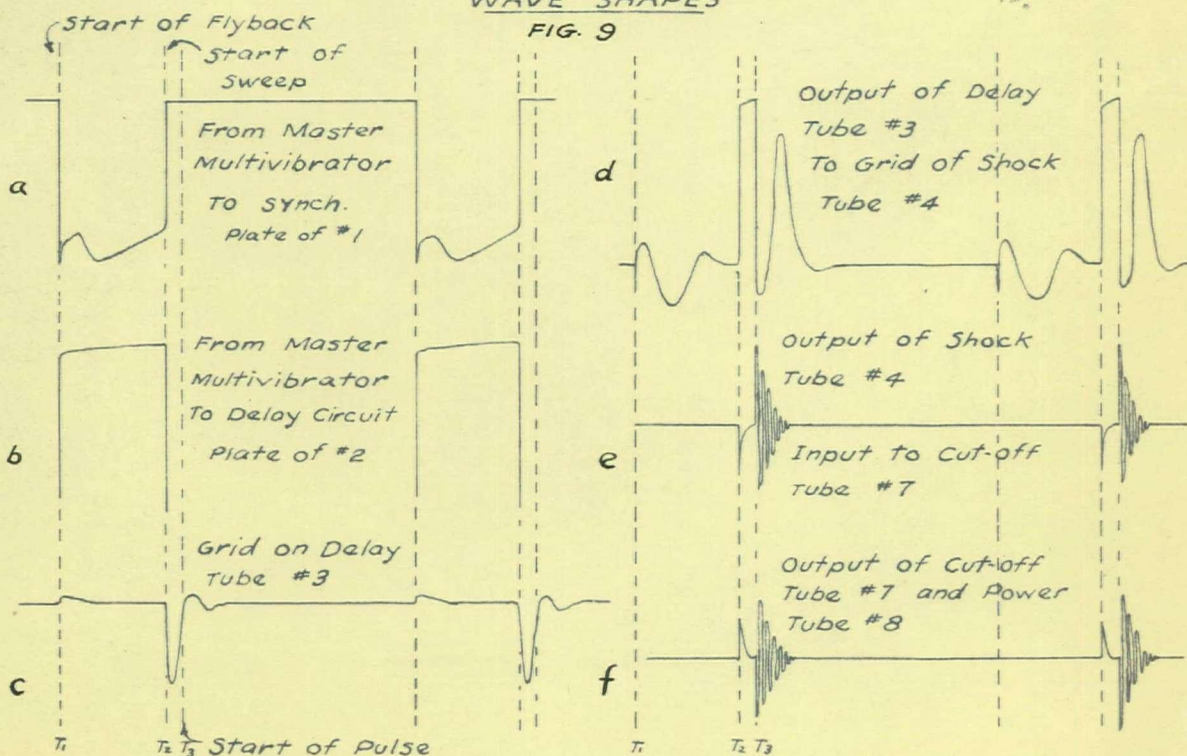 WAVE SHAPES
FIG. 9
Start of Flyback
Start of
Sweep
a
From Master
Multivibrator
To Synch.
Plate of #1
b
From Master
Multivibrator
To Delay Circuit
Plate of #2
c
Grid on Delay
Tube #3
T1 T2 T3 Start of Pulse
d
Output of Delay
Tube #3
To Grid of Shock
Tube #4
e
Output of Shock
Tube #4
Input to Cut-off
Tube #7
f
Output of Cut-off
Tube #7 and Power
Tube #8
T1 T2 T3